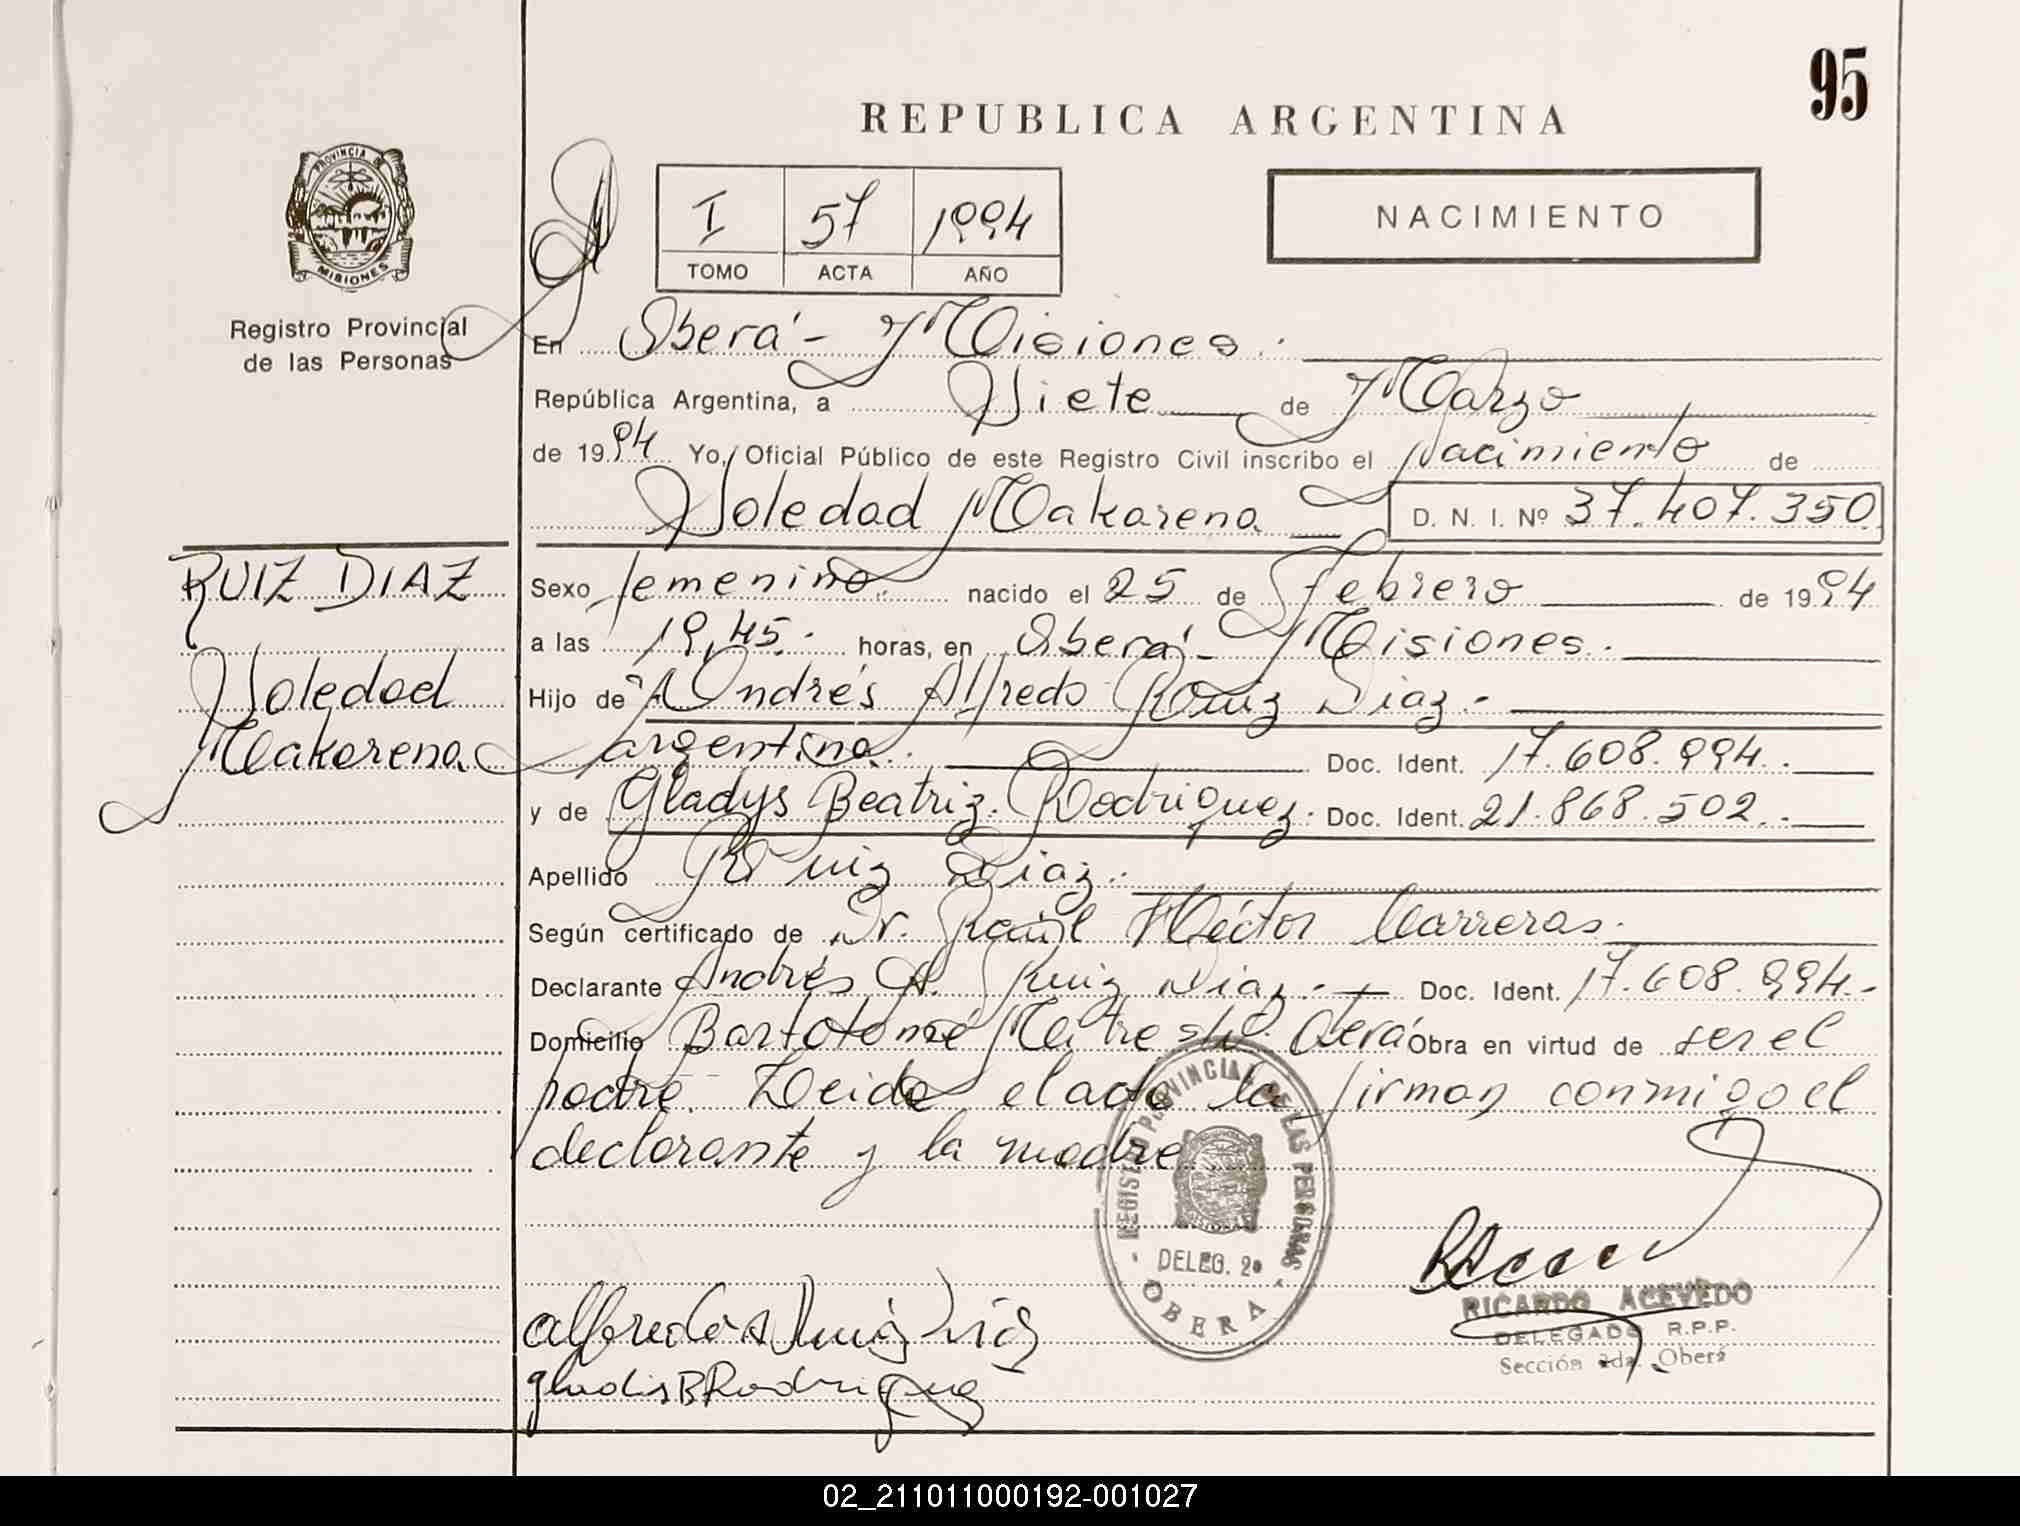 95
REPUBLICA ARGENTINA
PROVINCIA DE
MISIONES
Registro Provincial
de las Personas
I 57 1994
TOMO ACTA AÑO
NACIMIENTO
En Oberá - Misiones.
República Argentina, a Siete de Marzo
de 1994 Yo, Oficial Público de este Registro Civil inscribo el Nacimiento de
Soledad Makarena D. N. I. Nº 37.407.350
RUIZ DIAZ
Soledad
Makarena
Sexo femenino. nacido el 25 de Febrero de 1994
a las 19,45. horas, en Oberá - Misiones.
Hijo de Andrés Alfredo Ruiz Diaz.-
argentina. Doc. Ident. 17.608.994.
y de Gladys Beatriz Rodriguez. Doc. Ident. 21.868.502.
Apellido Ruiz Diaz.
Según certificado de Dr. Raúl Héctor Carreras.
Declarante Andrés A. Ruiz Diaz.- Doc. Ident. 17.608.994.-
Domicilio Bartolomé Mitre Oberá Obra en virtud de ser el
padre. Leida el acta la firman conmigo el
declarante y la madre
REGISTRO PROVINCIAL DE LAS PERSONAS
DELEG. 2ª
OBERA
RICARDO ACEVEDO
DELEGADO R.P.P.
Sección 2da. Oberá
gladis B Rodriguez
02_211011000192-001027